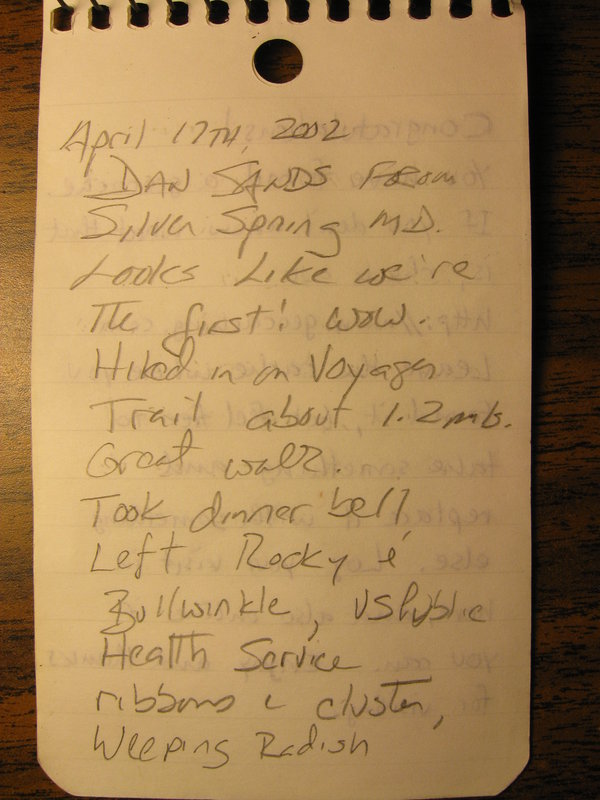 April 17TH, 2002
DAN SANDS FROM
Silver Spring MD.
Looks Like we're
The first! wow.
Hiked in on Voyager
Trail about 1.2 mls.
Great walk.
Took dinner bell,
Left Rocky &
Bullwinkle, US Public
Health Service
ribbons & cluster,
Weeping Radish